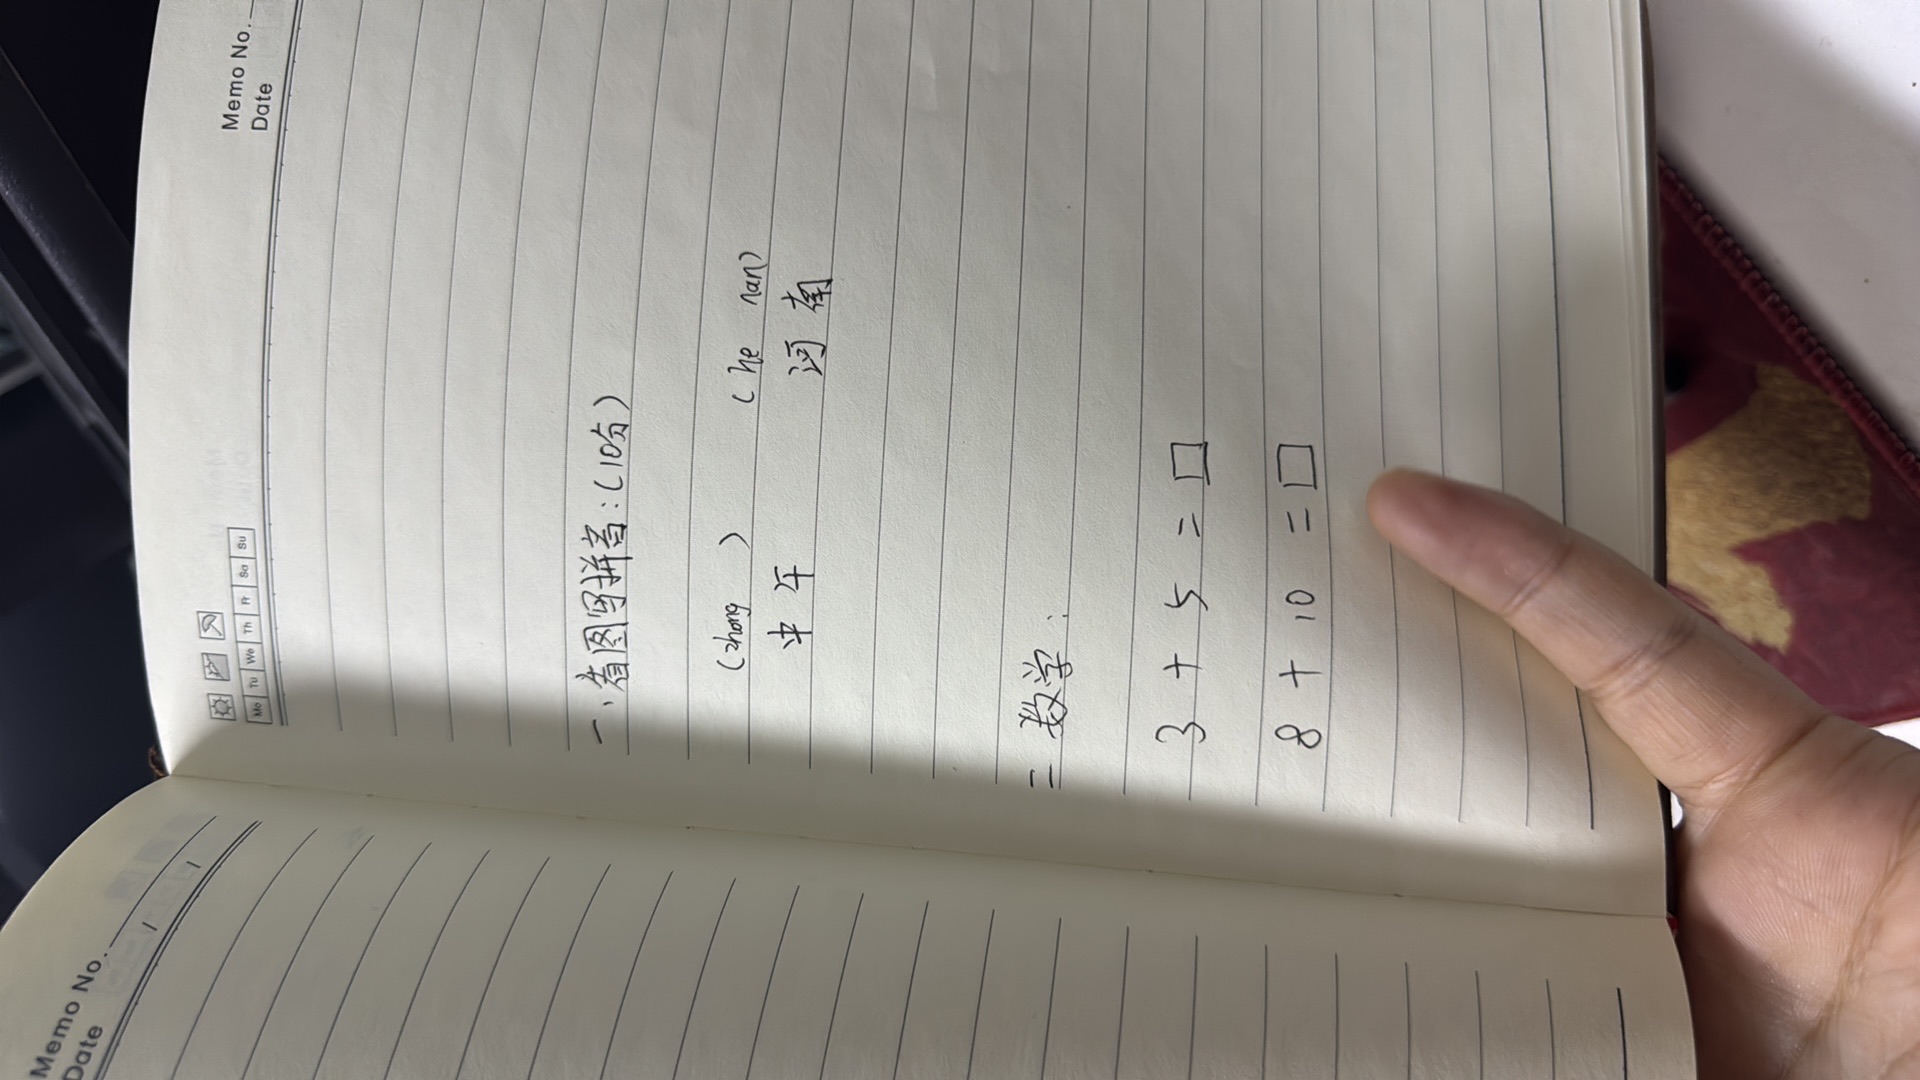 Memo No.
Date
Mo Tu We Th Fr Sa Su
一、看图写拼音:(10分)
(zhong )   (he nan)
中 午   河 南
二 数学:
3 + 5 = □
8 + 10 = □
Memo No.
Date / /